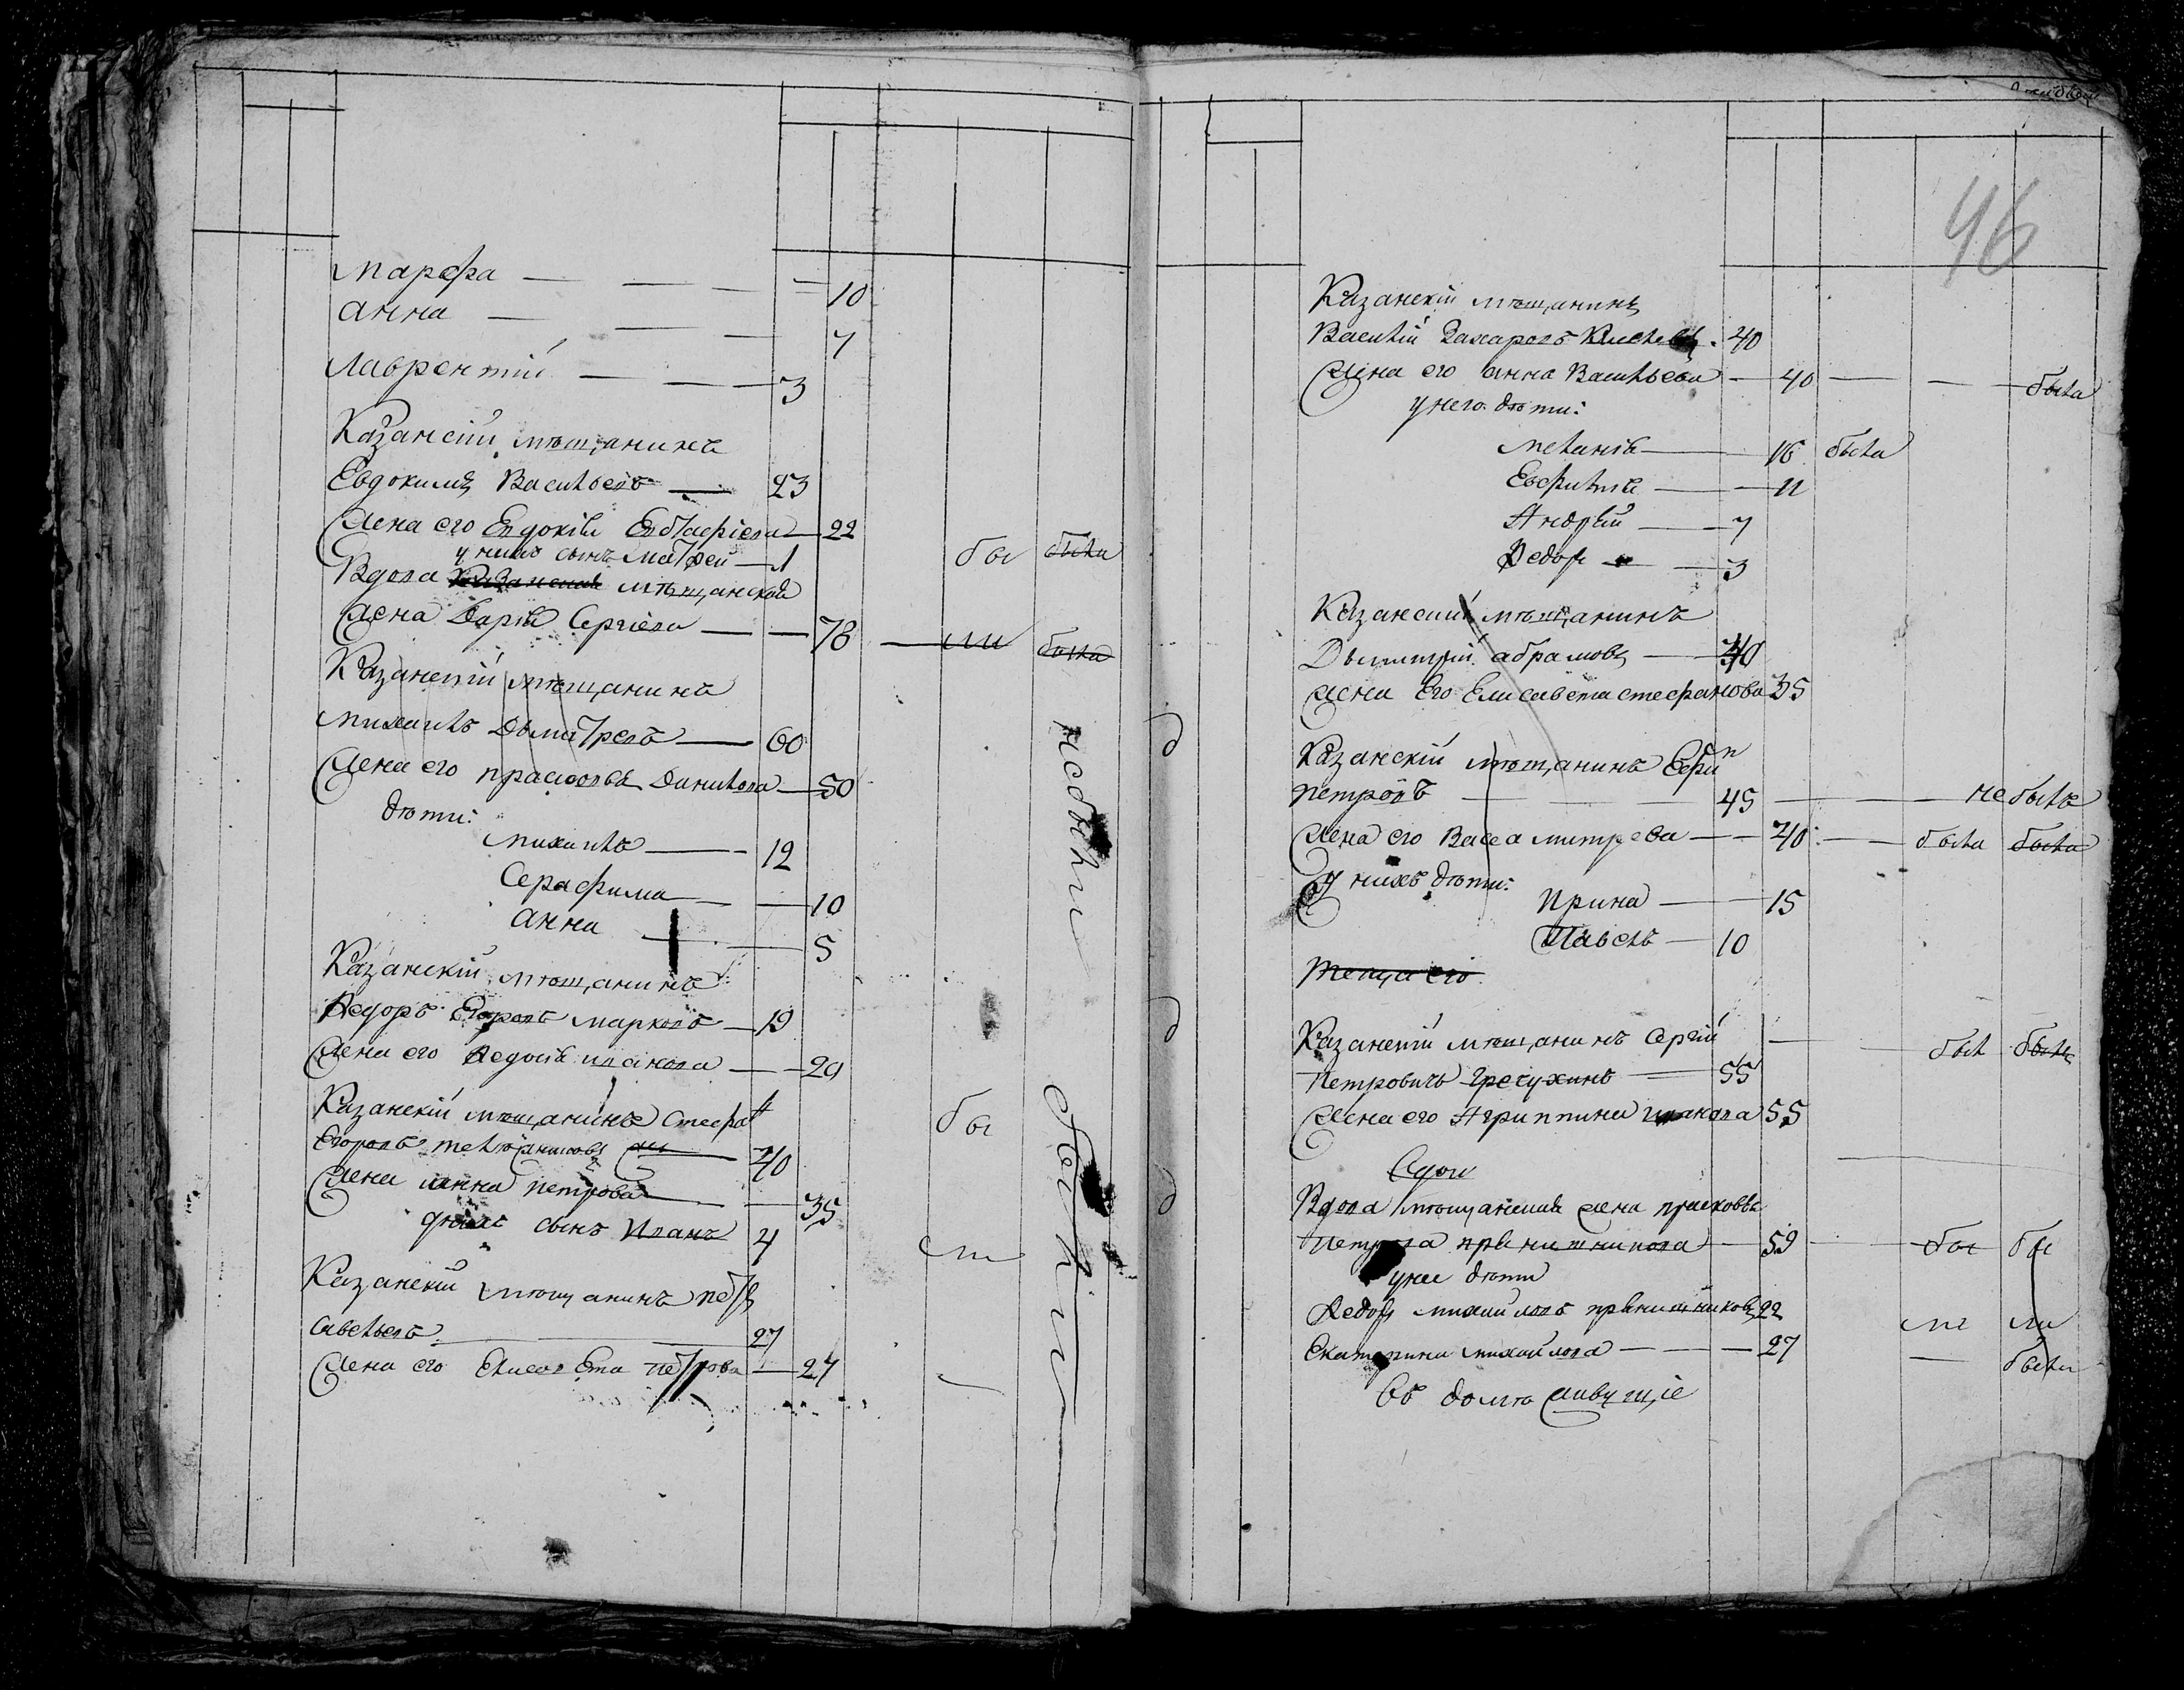 Марѳа — — — 10
Анна — — — 7
Лаврентій — — — 3
Казанскій мѣщанинъ
Евдокимъ Васильевъ — 23
Жена его Евдокія Евстафіева — 22
у нихъ сынъ Матфей — 1 бы была
Вдова Казанская мѣщанская
жена Дарія Сергіева — — 78 — ли была
Казанскій мѣщанинъ
Михаилъ Дмитревъ — 60
Жена его Прасковья Данилова — 50
дѣти:
Михаилъ — 12
Серафима — — 10
Анна — 5
Казанскій мѣщанинъ
Ѳедоръ Егоровъ Марковъ — 19
Жена его Ѳедосія Иванова — 20
Казанскій мѣщанинъ Стефа бы
Егоровъ 40
Жена Анна Петрова — 35
сынъ Иванъ 4
ли
Казанскій мѣщанинъ Петръ
Савельевъ — 27
Жена его Елисавета Петрова — 27
не были
были
46
Казанскій мѣщанинъ
Василій Захаровъ 40
Жена его Анна Васильева — 40 — — была
у него дѣти:
Меланія — 16 была
Евфимія — 11
Андрей — 7
Ѳедоръ — 3
Казанскій мѣщанинъ
Дмитрій Абрамовъ — 40
Жена его Елисавета Стефанова 35
Казанскій мѣщанинъ
Петровъ — 45 — — не былъ
Жена его Васса Митрева — — 40 — была была
У нихъ дѣти:
Ирина — 15
Павелъ — 10
Теща его
Казанскій мѣщанинъ Сергій — был были
Петровичъ Гречухинъ — 55
Жена его Агриппина Иванова 55
Вдова мѣщанская жена Прасковья
Петрова Прянишникова — 59 — бы бы
у нее дѣти
Ѳедоръ Михайловъ Прянишниковъ 22 ли ли
Екатерина Михайлова — — — 27 — была
Въ домѣ живущіе